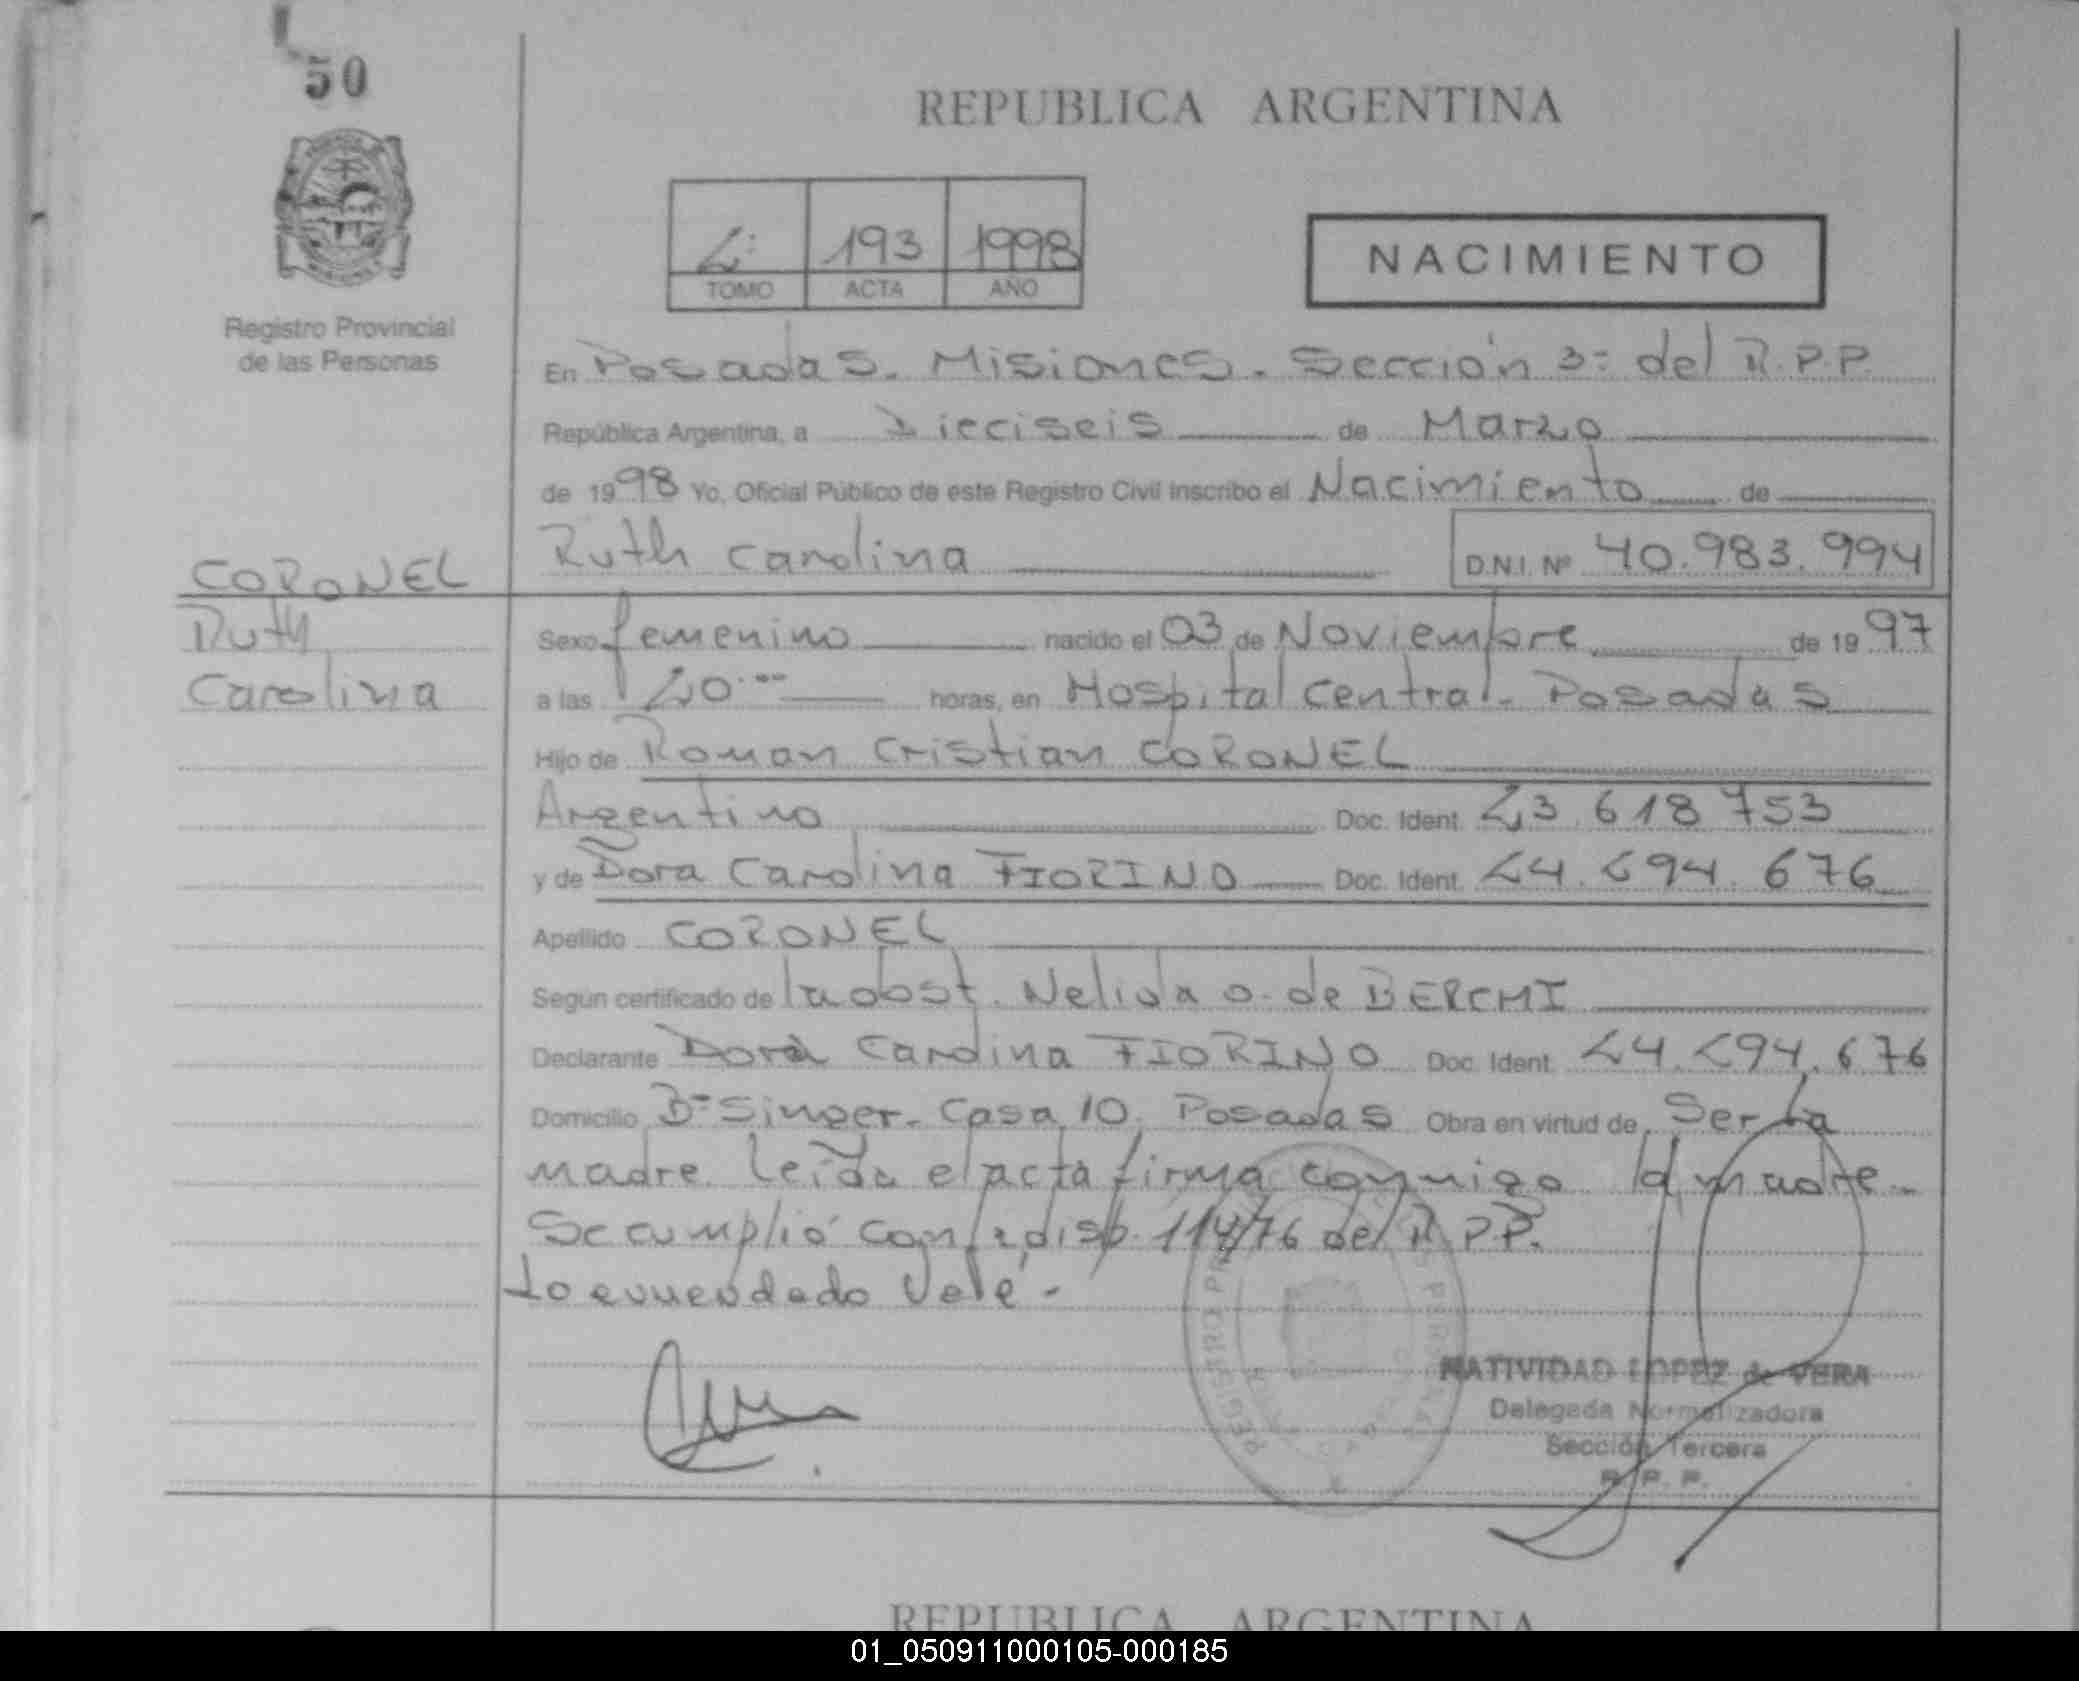 50
REPUBLICA ARGENTINA
2º 193 1998
TOMO ACTA AÑO
NACIMIENTO
Registro Provincial
de las Personas
En Posadas. Misiones. Sección 3º del R.P.P.
República Argentina, a Dieciseis de Marzo
de 1998 Yo, Oficial Público de este Registro Civil inscribo el Nacimiento de
Ruth Carolina D.N.I. Nº 40.983.994
CORONEL
Ruth
Carolina
Sexo femenino nacido el 03 de Noviembre de 1997
a las 20.00 horas, en Hospital Central. Posadas
Hijo de Roman Cristian CORONEL
Argentino Doc. Ident. 23.618.753
y de Dora Carolina FIORINO Doc. Ident. 24.294.676
Apellido CORONEL
Según certificado de la obst. Nelida O. de BERCHI
Declarante Dora Carolina FIORINO Doc. Ident. 24.294.676
Domicilio Bº Singer. Casa 10. Posadas Obra en virtud de Ser la
madre. Leída el acta firma conmigo la madre.
Se cumplió con la disp. 114/76 del R.P.P.
Lo enmendado Vale.
NATIVIDAD LOPEZ de VERA
Delegada Normalizadora
Sección Tercera
R. P. P.
REPUBLICA ARGENTINA
01_050911000105-000185